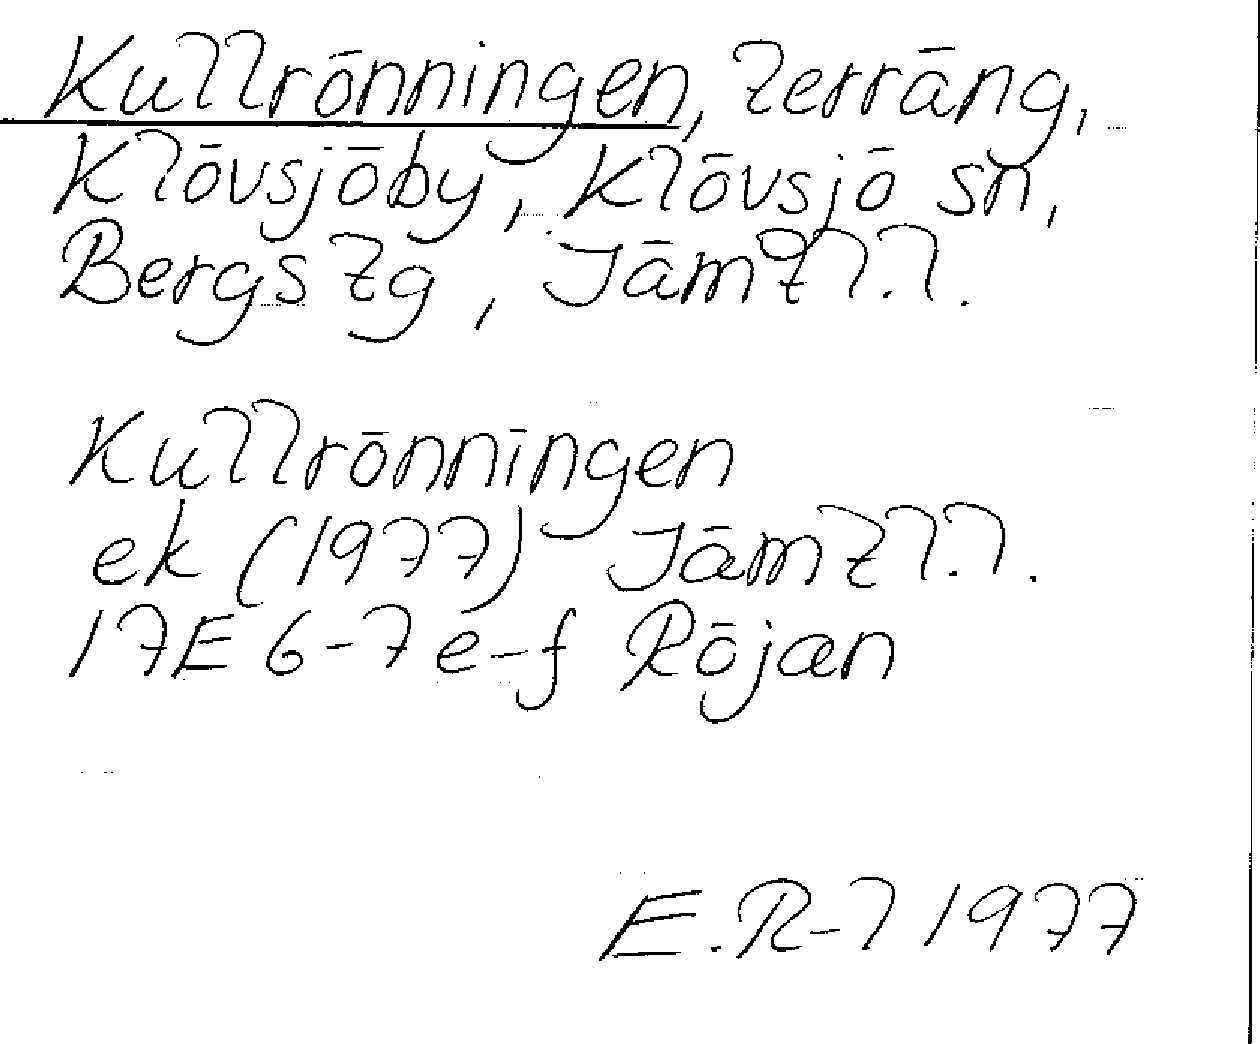 Kullrönningen, terräng,
Klövsjöby, Klövsjö sn,
Bergs tg, Jämtl.l.
Kullrönningen
ek (1977) Jämtl.l.
17E 6-7 e-f Röjan
E.R-l 1977